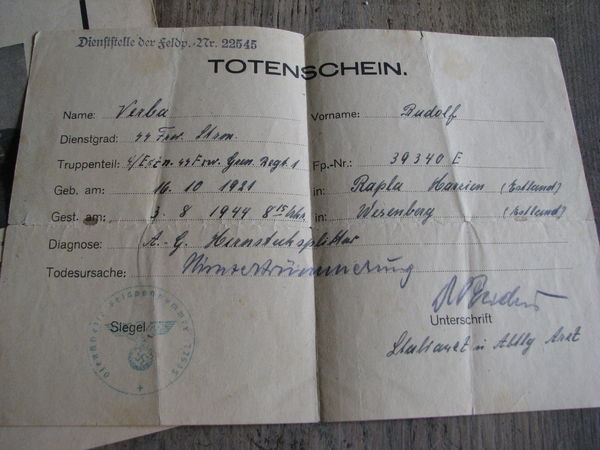 Dienststelle der Feldp.-Nr. 22545
TOTENSCHEIN.
Name: Verba Vorname: Rudolf
Dienstgrad: SS Frw. Strm.
Truppenteil: SS Frw. Gren. Regt. 1 Fp.-Nr.: 39340 E
Geb. am: 16. 10 1921 in: Rapla Harrien (Estland)
Gest. am: 3. 8 1944 8 15 Uhr in: Wesenberg (Estland)
Diagnose: A.-G. Hirnstecksplitter
Todesursache: Hirnzertrümmerung
Siegel
Unterschrift
Stabsarzt u. Abtlg Arzt